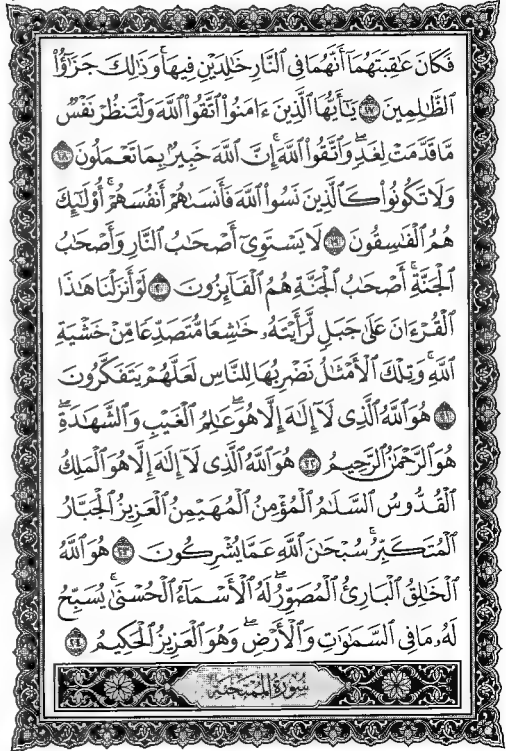 فَكَانَ عَٰقِبَتَهُمَآ أَنَّهُمَا فِي ٱلنَّارِ خَٰلِدَيْنِ فِيهَاۚ وَذَٰلِكَ جَزَٰٓؤُاْ
ٱلظَّٰلِمِينَ ١٧ يَٰٓأَيُّهَا ٱلَّذِينَ ءَامَنُواْ ٱتَّقُواْ ٱللَّهَ وَلْتَنظُرْ نَفْسٌ
مَّا قَدَّمَتْ لِغَدٍۖ وَٱتَّقُواْ ٱللَّهَۚ إِنَّ ٱللَّهَ خَبِيرٌۢ بِمَا تَعْمَلُونَ ١٨
وَلَا تَكُونُواْ كَٱلَّذِينَ نَسُواْ ٱللَّهَ فَأَنسَىٰهُمْ أَنفُسَهُمْۚ أُوْلَٰٓئِكَ
هُمُ ٱلْفَٰسِقُونَ ١٩ لَا يَسْتَوِيٓ أَصْحَٰبُ ٱلنَّارِ وَأَصْحَٰبُ
ٱلْجَنَّةِۚ أَصْحَٰبُ ٱلْجَنَّةِ هُمُ ٱلْفَآئِزُونَ ٢٠ لَوْ أَنزَلْنَا هَٰذَا
ٱلْقُرْءَانَ عَلَىٰ جَبَلٍ لَّرَأَيْتَهُۥ خَٰشِعًا مُّتَصَدِّعًا مِّنْ خَشْيَةِ
ٱللَّهِۚ وَتِلْكَ ٱلْأَمْثَٰلُ نَضْرِبُهَا لِلنَّاسِ لَعَلَّهُمْ يَتَفَكَّرُونَ
٢١ هُوَ ٱللَّهُ ٱلَّذِي لَآ إِلَٰهَ إِلَّا هُوَۖ عَٰلِمُ ٱلْغَيْبِ وَٱلشَّهَٰدَةِۖ
هُوَ ٱلرَّحْمَٰنُ ٱلرَّحِيمُ ٢٢ هُوَ ٱللَّهُ ٱلَّذِي لَآ إِلَٰهَ إِلَّا هُوَ ٱلْمَلِكُ
ٱلْقُدُّوسُ ٱلسَّلَٰمُ ٱلْمُؤْمِنُ ٱلْمُهَيْمِنُ ٱلْعَزِيزُ ٱلْجَبَّارُ
ٱلْمُتَكَبِّرُۚ سُبْحَٰنَ ٱللَّهِ عَمَّا يُشْرِكُونَ ٢٣ هُوَ ٱللَّهُ
ٱلْخَٰلِقُ ٱلْبَارِئُ ٱلْمُصَوِّرُۖ لَهُ ٱلْأَسْمَآءُ ٱلْحُسْنَىٰۚ يُسَبِّحُ
لَهُۥ مَا فِي ٱلسَّمَٰوَٰتِ وَٱلْأَرْضِۖ وَهُوَ ٱلْعَزِيزُ ٱلْحَكِيمُ ٢٤
سُورَةُ ٱلْمُمْتَحِنَةِ